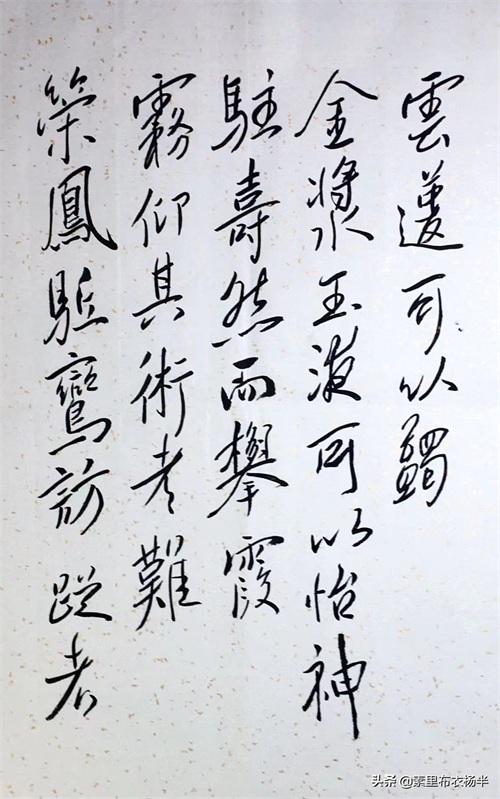 雲可以蠲
金漿玉液可以怡神
駐壽然而攀霞
霧仰其術者難
榮鳳駈鸞訪蹤者
头条 @素里布衣杨半